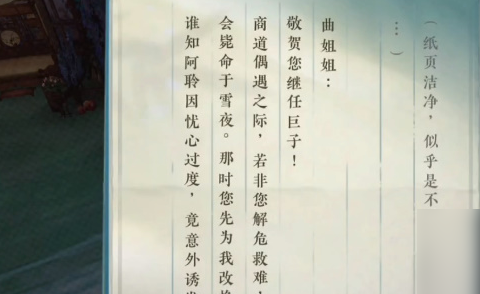 （纸页洁净，似乎是不
…）
曲姐姐：
敬贺您继任巨子！
商道偶遇之际，若非您解危救难，
会毙命于雪夜。那时您先为我改换
谁知阿聆因忧心过度，竟意外诱发